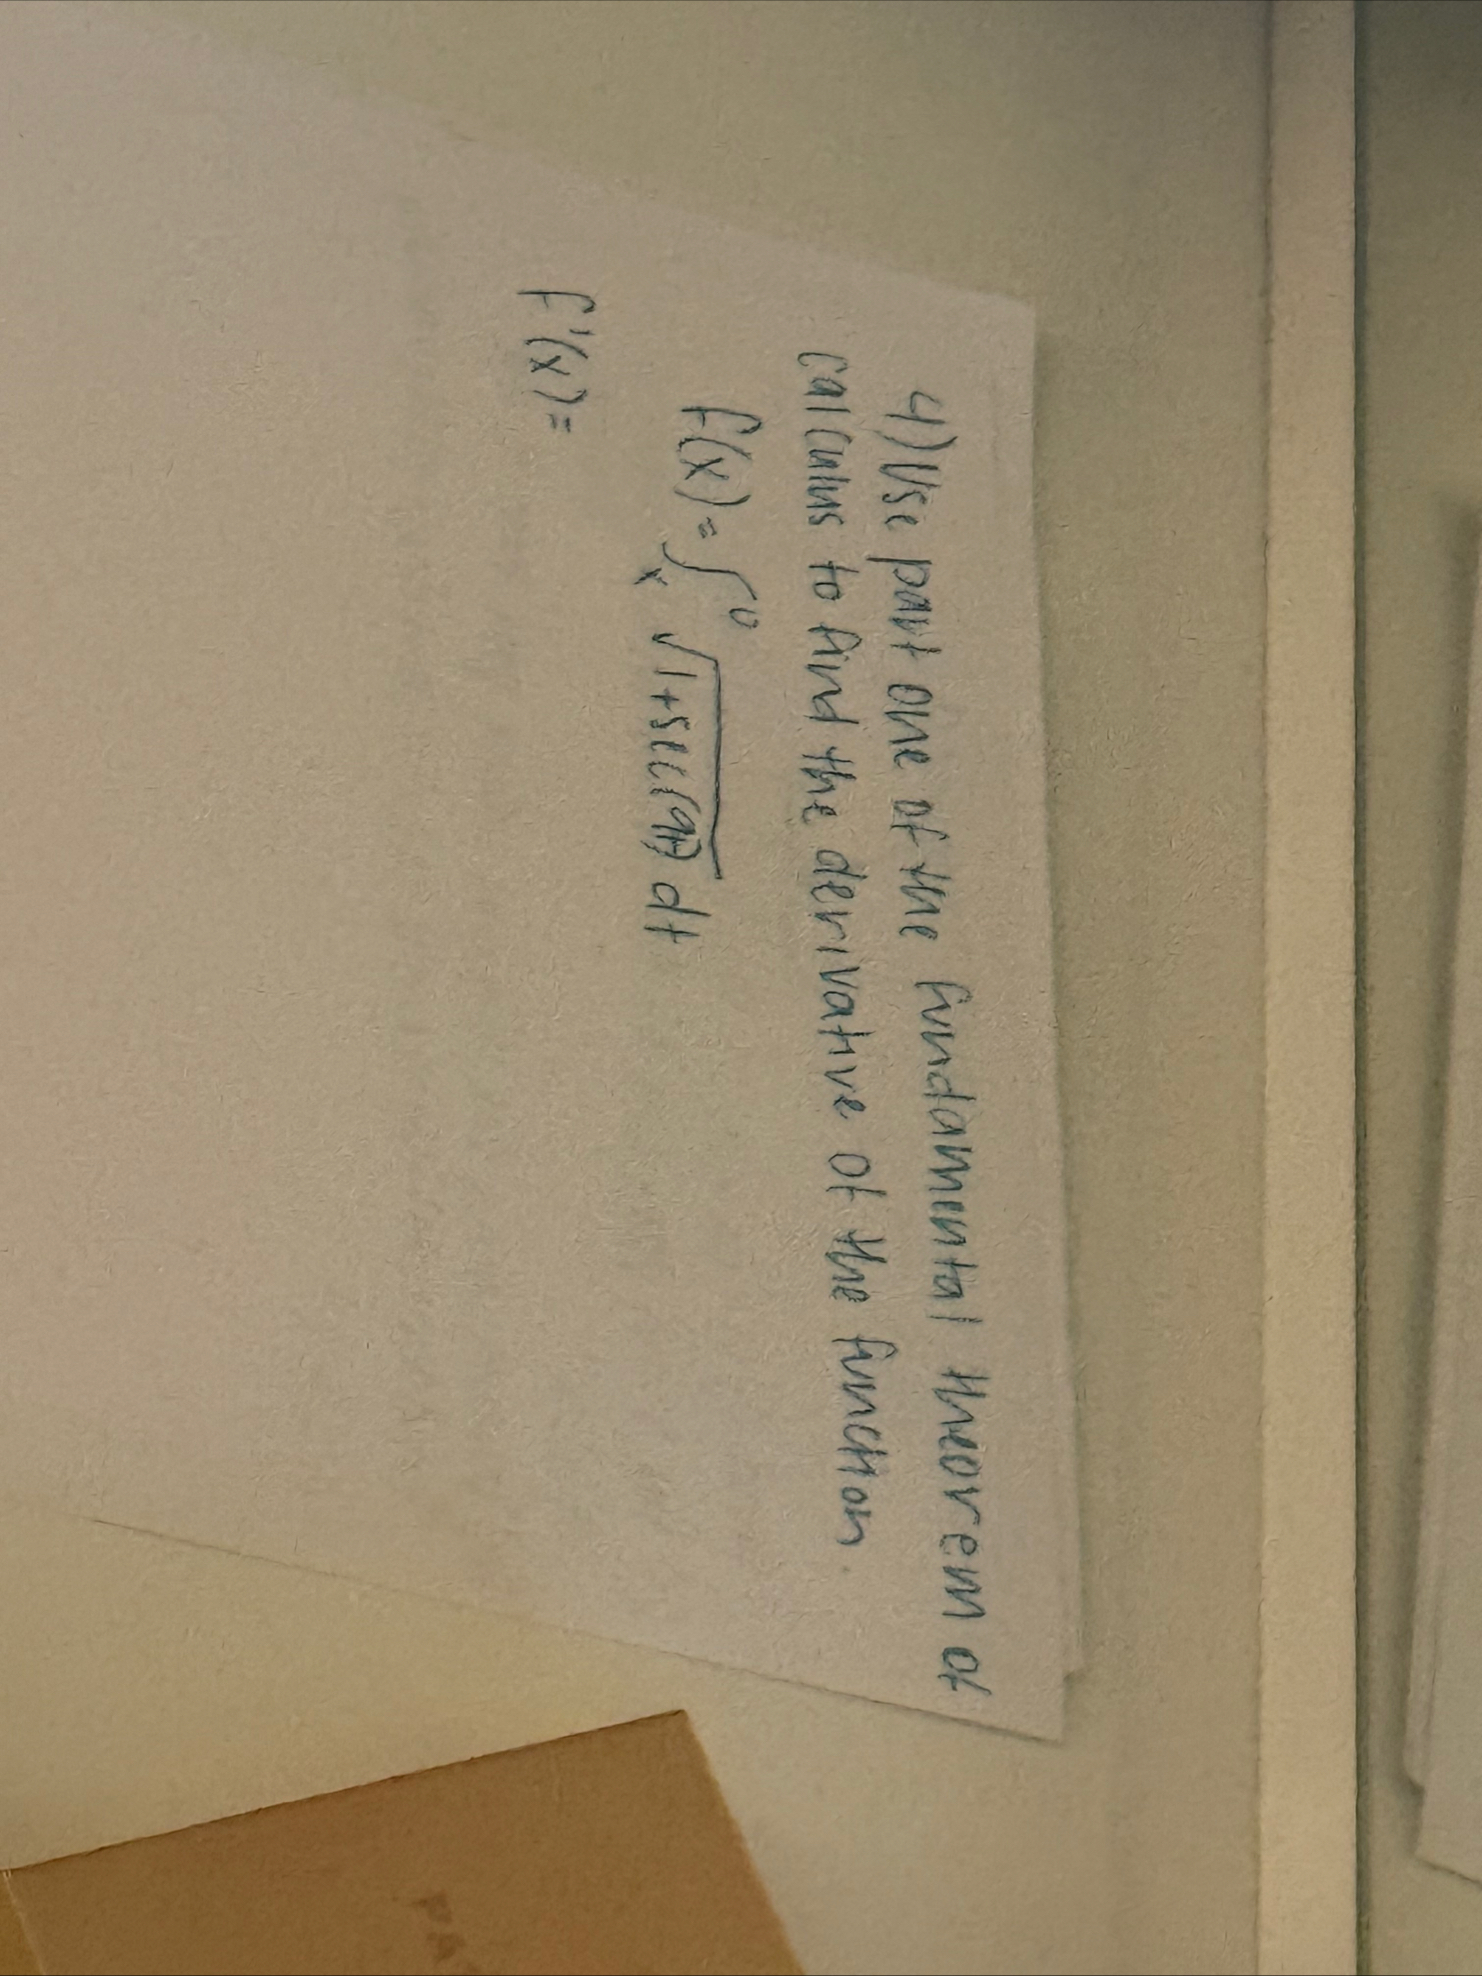 4) Use part one of the fundamental theorem of
calculus to find the derivative of the function.
f(x) = ∫ₓ⁰ √1+sec(9t) dt
F'(x) =
PA